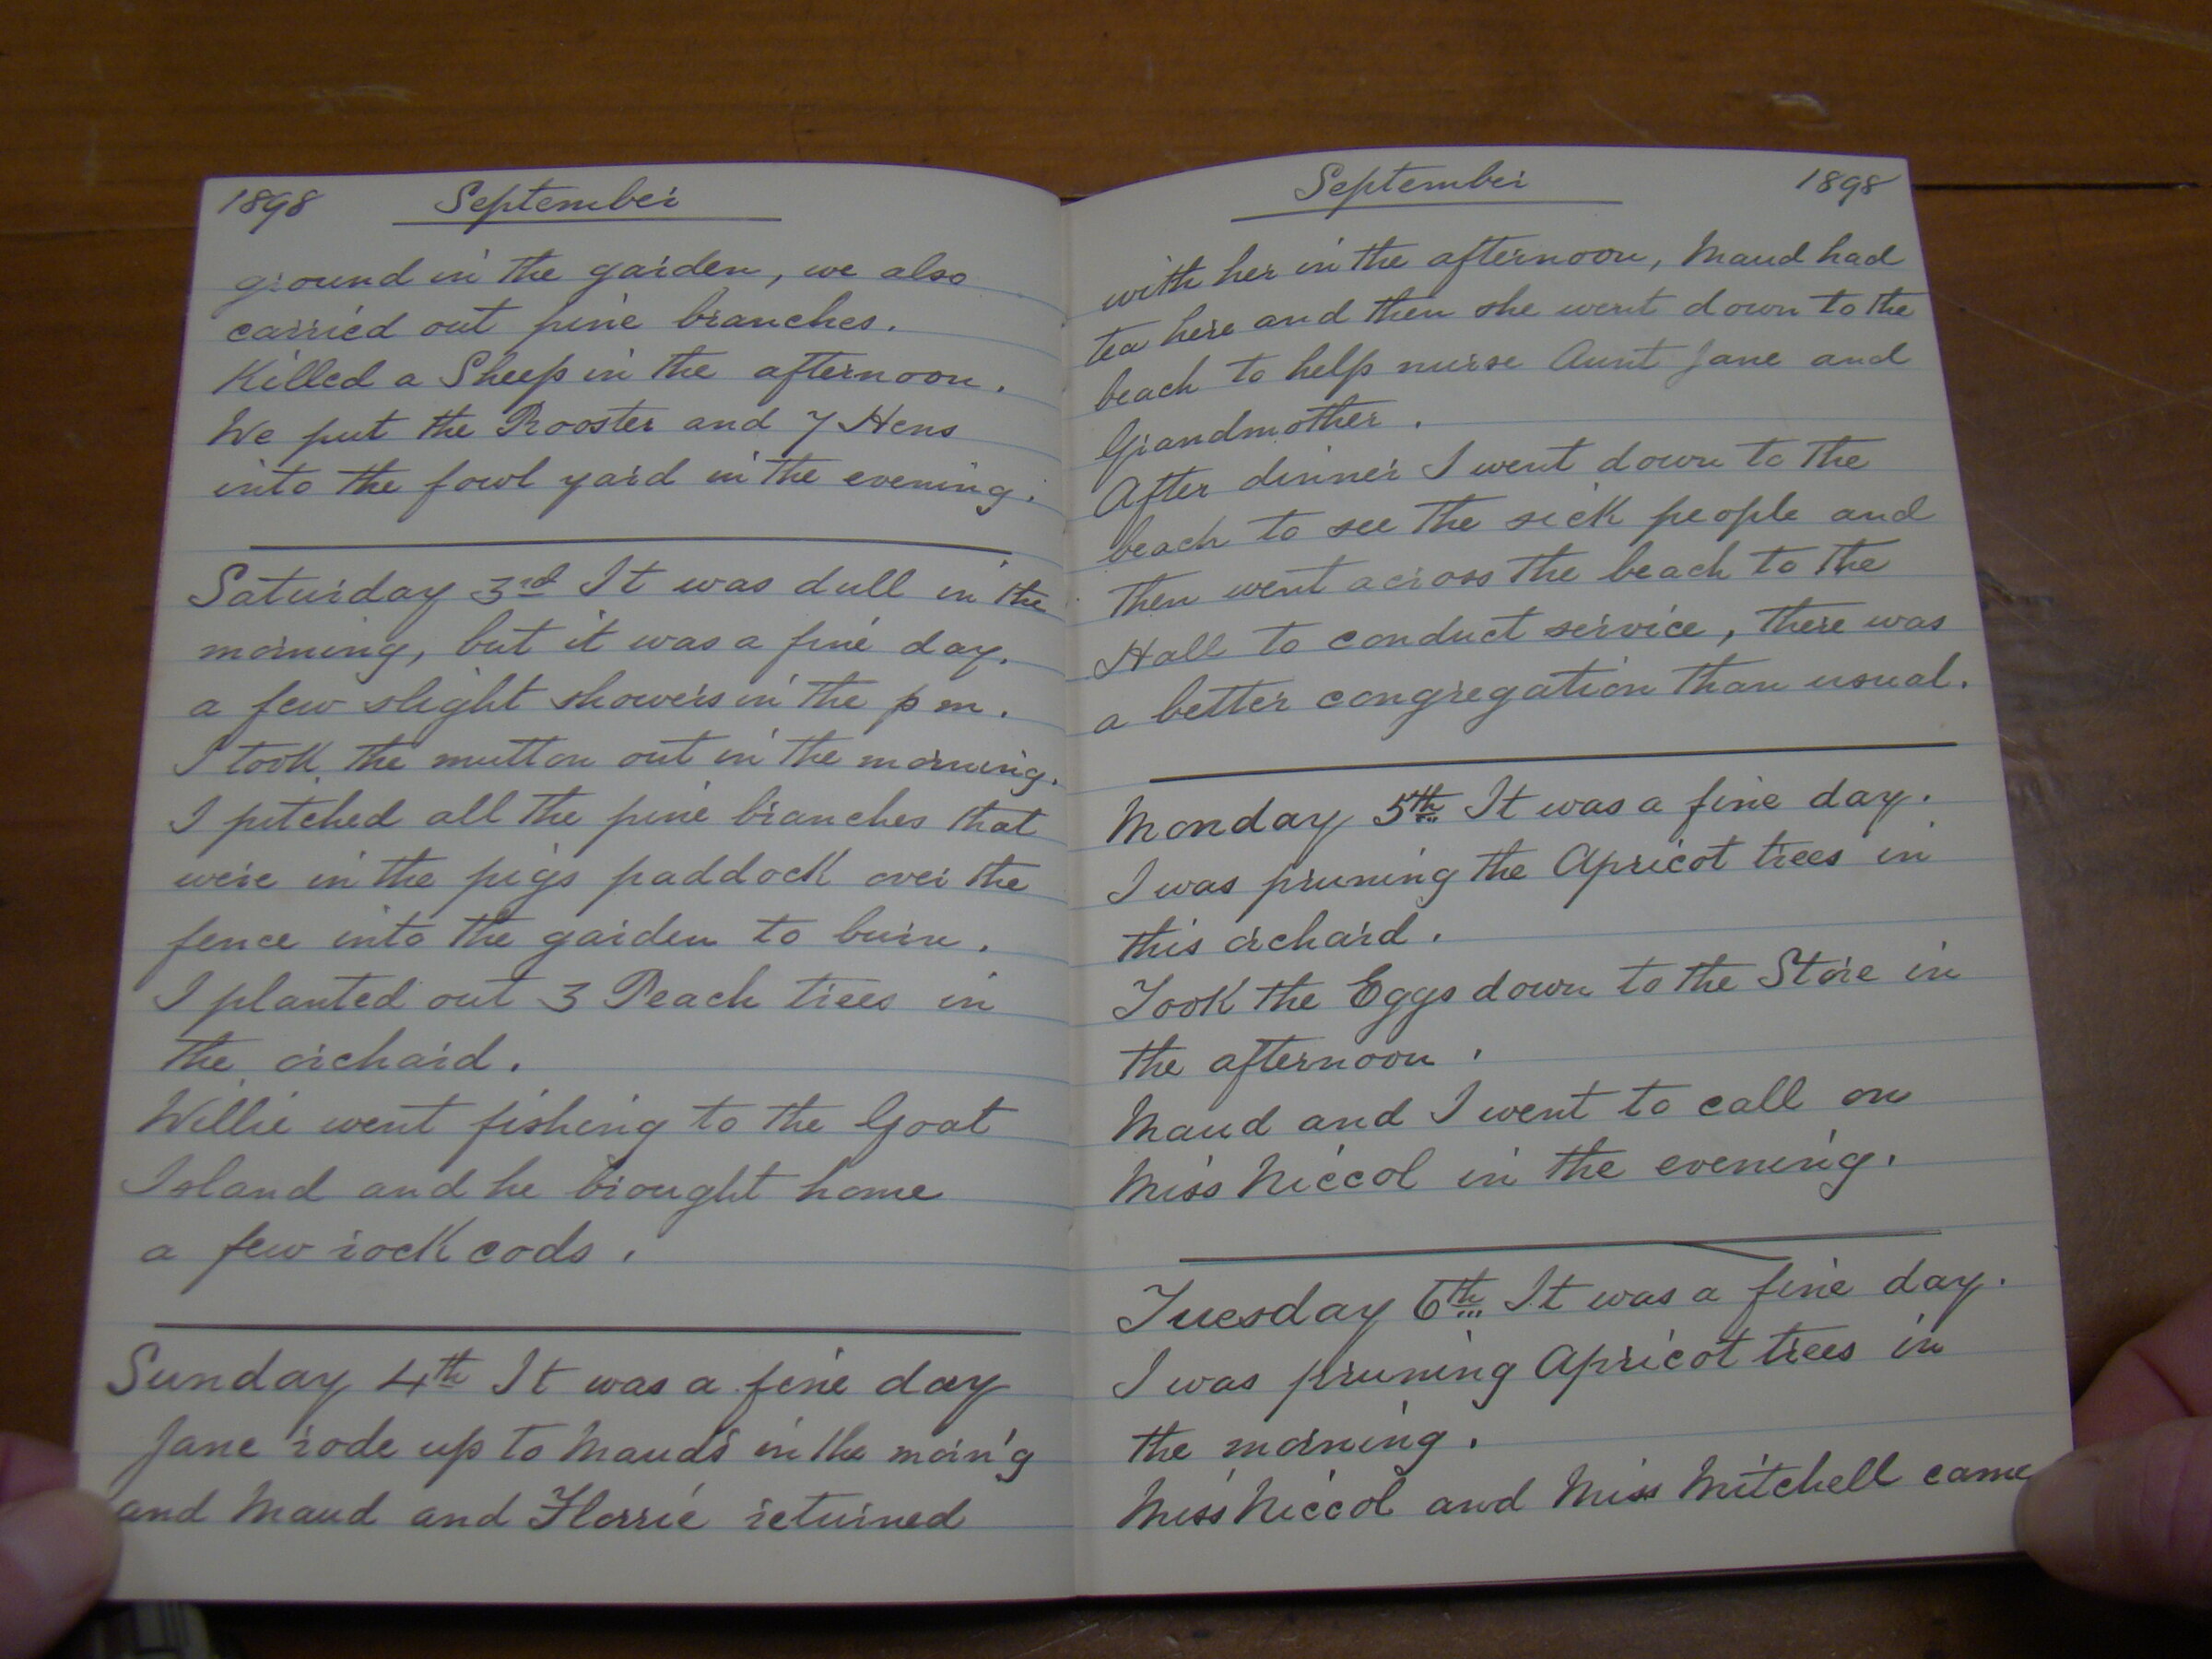 1898 September
ground in the garden, we also
carried out pine branches.
Killed a Sheep in the afternoon.
We put the Rooster and 7 Hens
into the fowl yard in the evening.
Saturday 3rd It was dull in the
morning, but it was a fine day.
a few slight showers in the p m.
I took the mutton out in the morning.
I pitched all the pine branches that
were in the pigs paddock over the
fence into the garden to burn.
I planted out 3 Peach trees in
the orchard.
Willie went fishing to the Goat
Island and he brought home
a few rock cods.
Sunday 4th It was a fine day
Jane rode up to Maud's in the morn'g
and Maud and Florrie returned
September 1898
with her in the afternoon, Maud had
tea here and then she went down to the
beach to help nurse Aunt Jane and
Grandmother.
After dinner I went down to the
beach to see the sick people and
then went across the beach to the
Hall to conduct service, there was
a better congregation than usual.
Monday 5th It was a fine day.
I was pruning the Apricot trees in
this orchard.
Took the Eggs down to the Store in
the afternoon.
Maud and I went to call on
Miss Niccol in the evening.
Tuesday 6th It was a fine day.
I was pruning Apricot trees in
the morning.
Miss Niccol and Miss Mitchell came